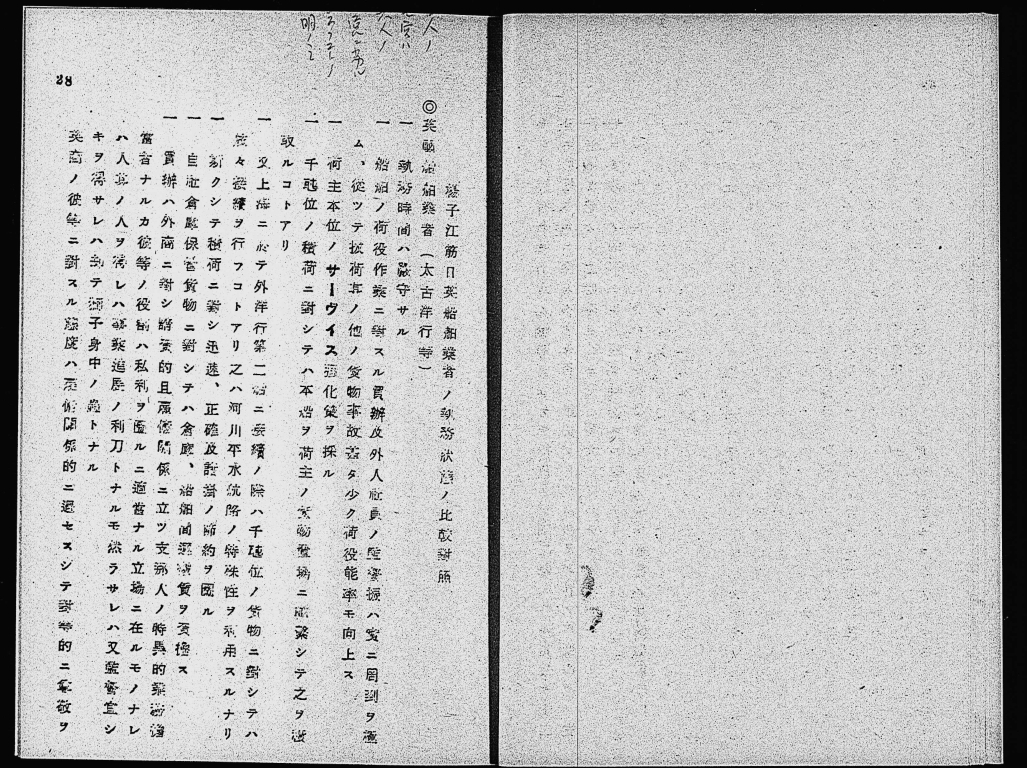 揚子江筋日英船舶業者ノ執務状態ノ比較対照
◎英商船舶業者(太古洋行等)
一 執務時間ハ厳守サル
一 船舶ノ荷役作業ニ対スル買辦及外人社員ノ監督振ハ実ニ周到ヲ極
ム、従ツテ抜荷其ノ他ノ貨物事故甚タ少ク荷役能率モ向上ス
一 荷主本位ノサーヴイス強化策ヲ採ル
一 千噸位ノ積荷ニ対シテハ本船ヲ荷主ノ貨物置場ニ繋シテ之ヲ
取ルコトアリ
一 又上海ニ於テ外洋行第二船ニ接続ノ際ハ千噸位ノ貨物ニ対シテハ
々接続ヲ行フコトアリ之ハ河川平水航路ノ特殊性ヲ利用スルナリ
一 斯クシテ積荷ニ対シ迅速、正確及諸掛ノ節約ヲ図ル
一 自社倉庫保管貨物ニ対シテハ倉庫、船舶間運搬賃ヲ負担ス
一 買辦ハ外商ニ対シ 的且雇傭関係ニ立ツ支那人ノ特異的業務
当者ナルカ彼等ノ役割ハ私利ヲ図ルニ適当ナル立場ニ在ルモノナレ
ハ人其ノ人ヲ得レハ事業進展ノ利刀トナルモ然ラサレハ又監督宜シ
キヲ得サレハ却テ獅子身中ノ蟲トナル
英商ノ彼等ニ対スル態度ハ雇傭関係的ニ過セスシテ対等的ニ尊敬ヲ
28